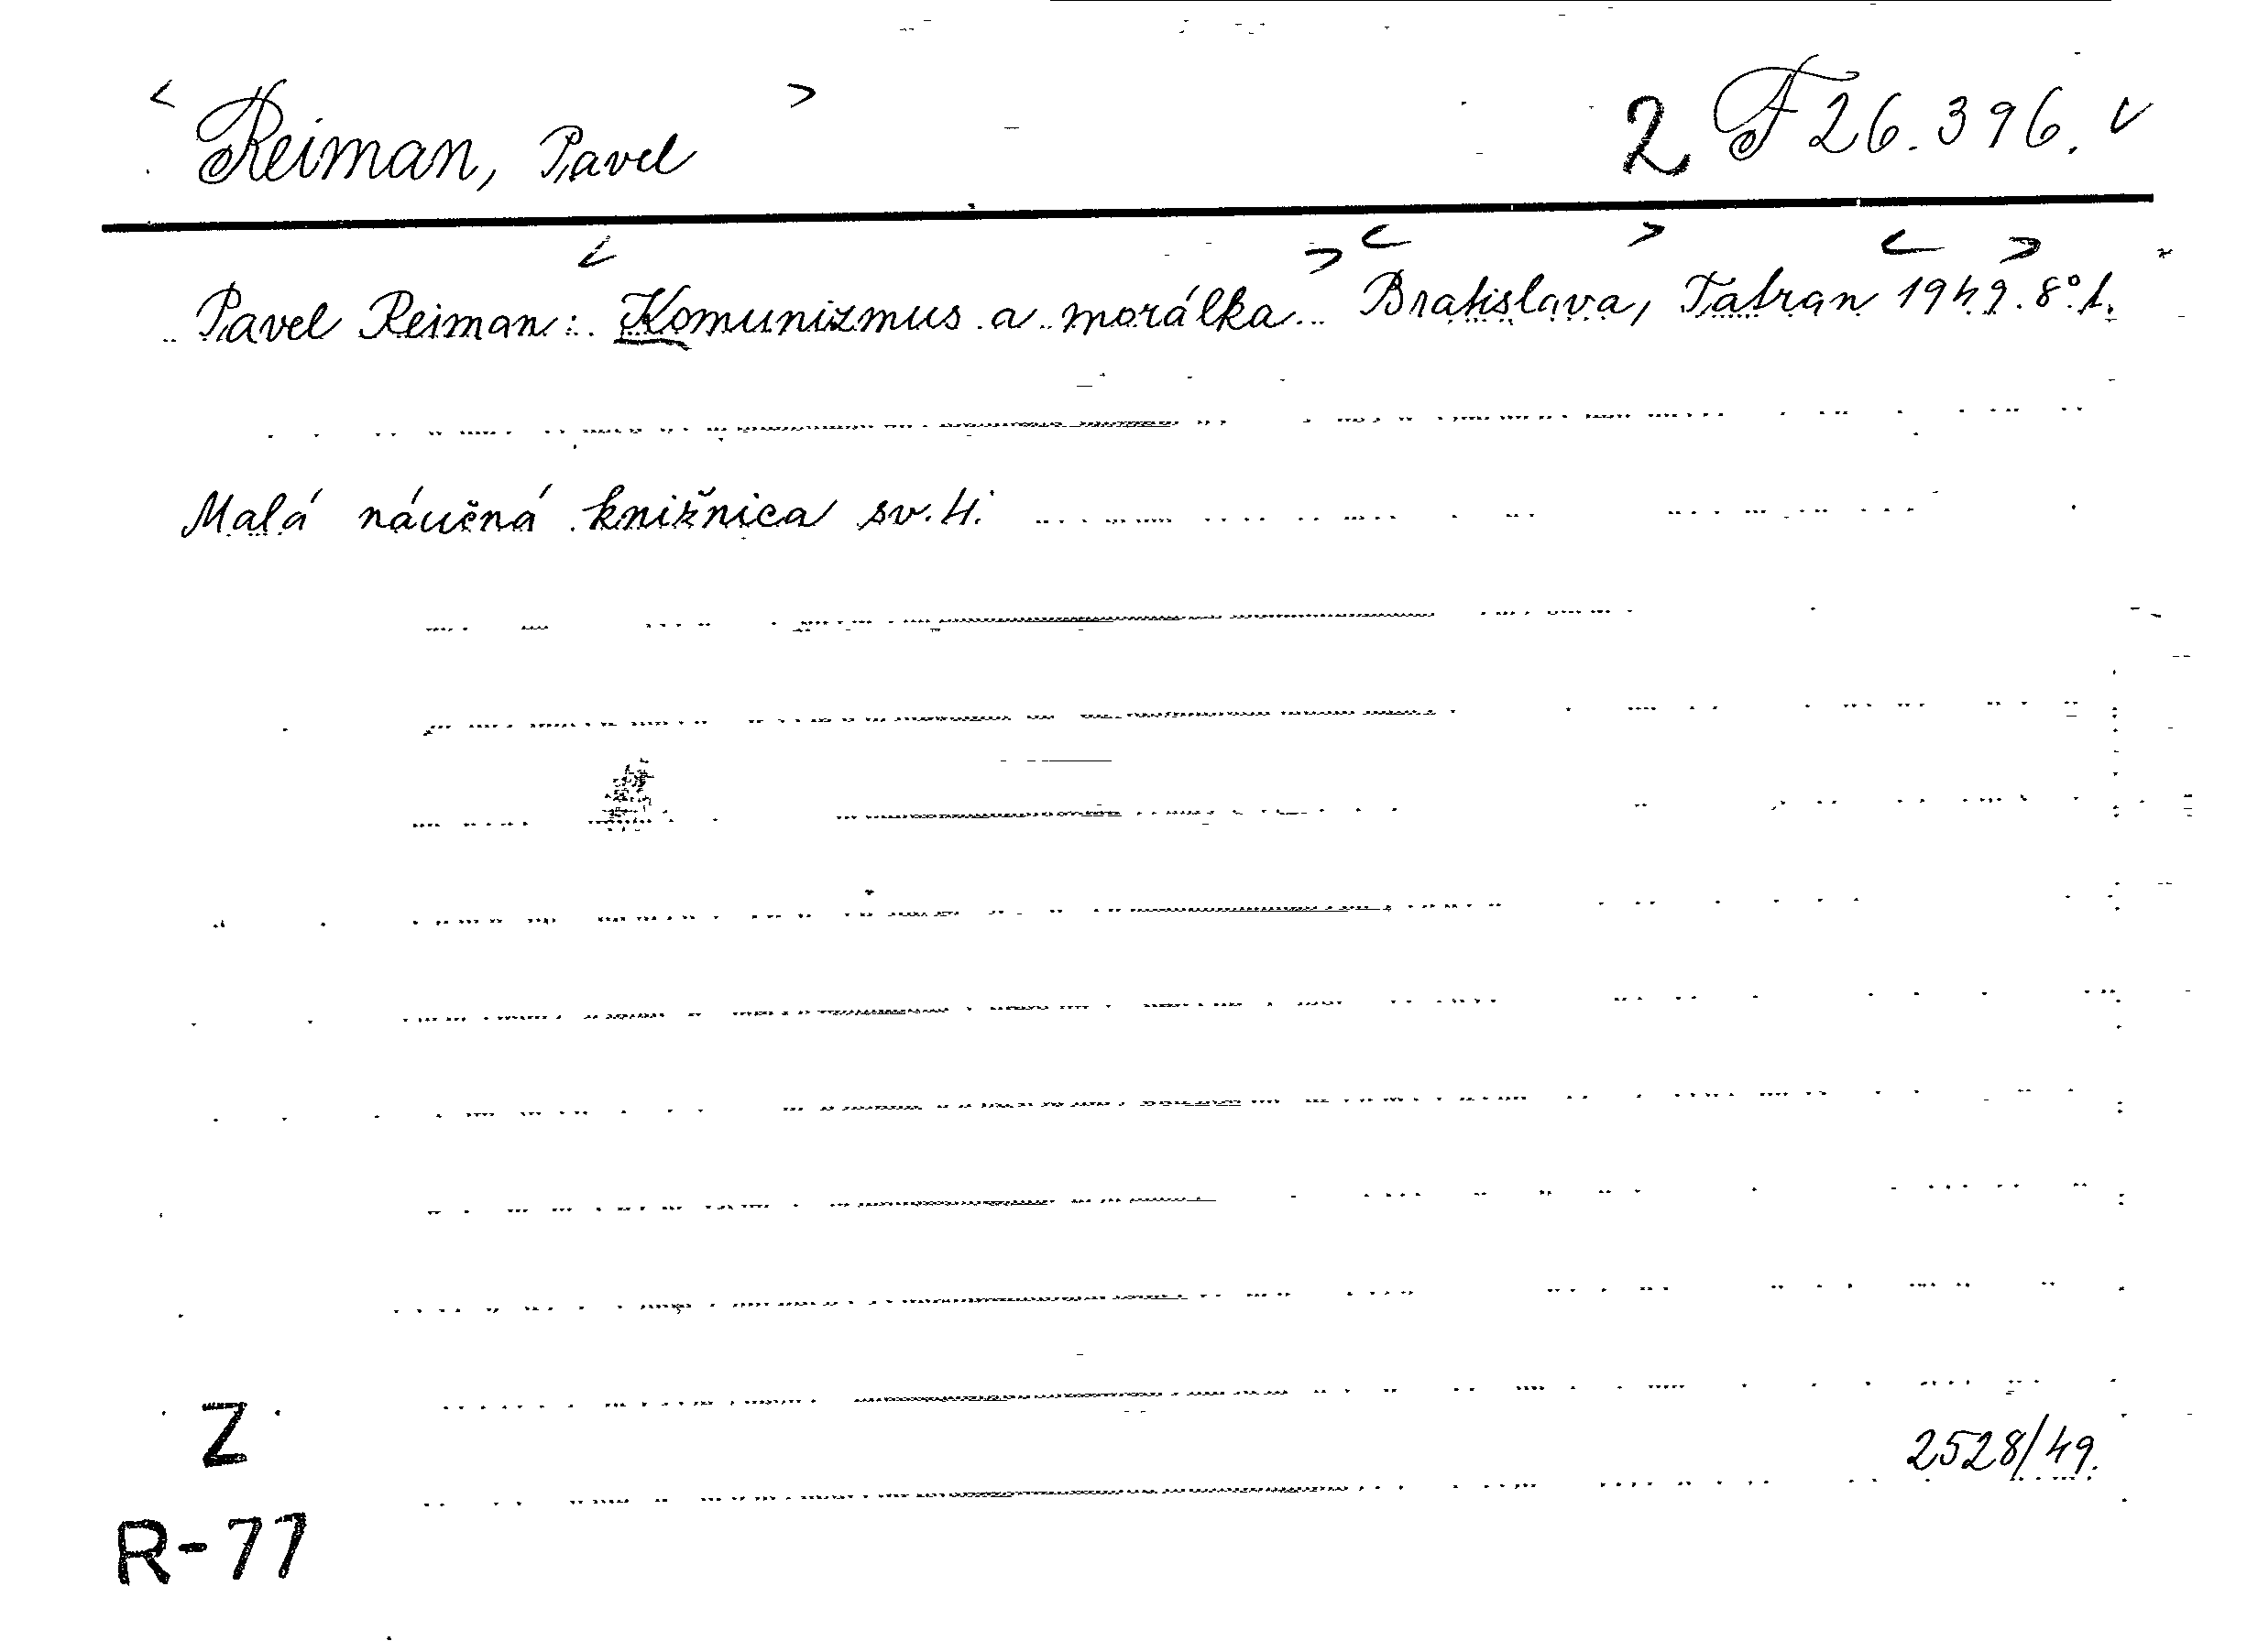 < Reiman, Pavel > 2 F 26.396. v
Pavel Reiman: <Komunizmus a morálka> <Bratislava>, Tatran <1949>. 8° 1.
Malá náučná knižnica sv. 4.
Z
2528/49.
R-77